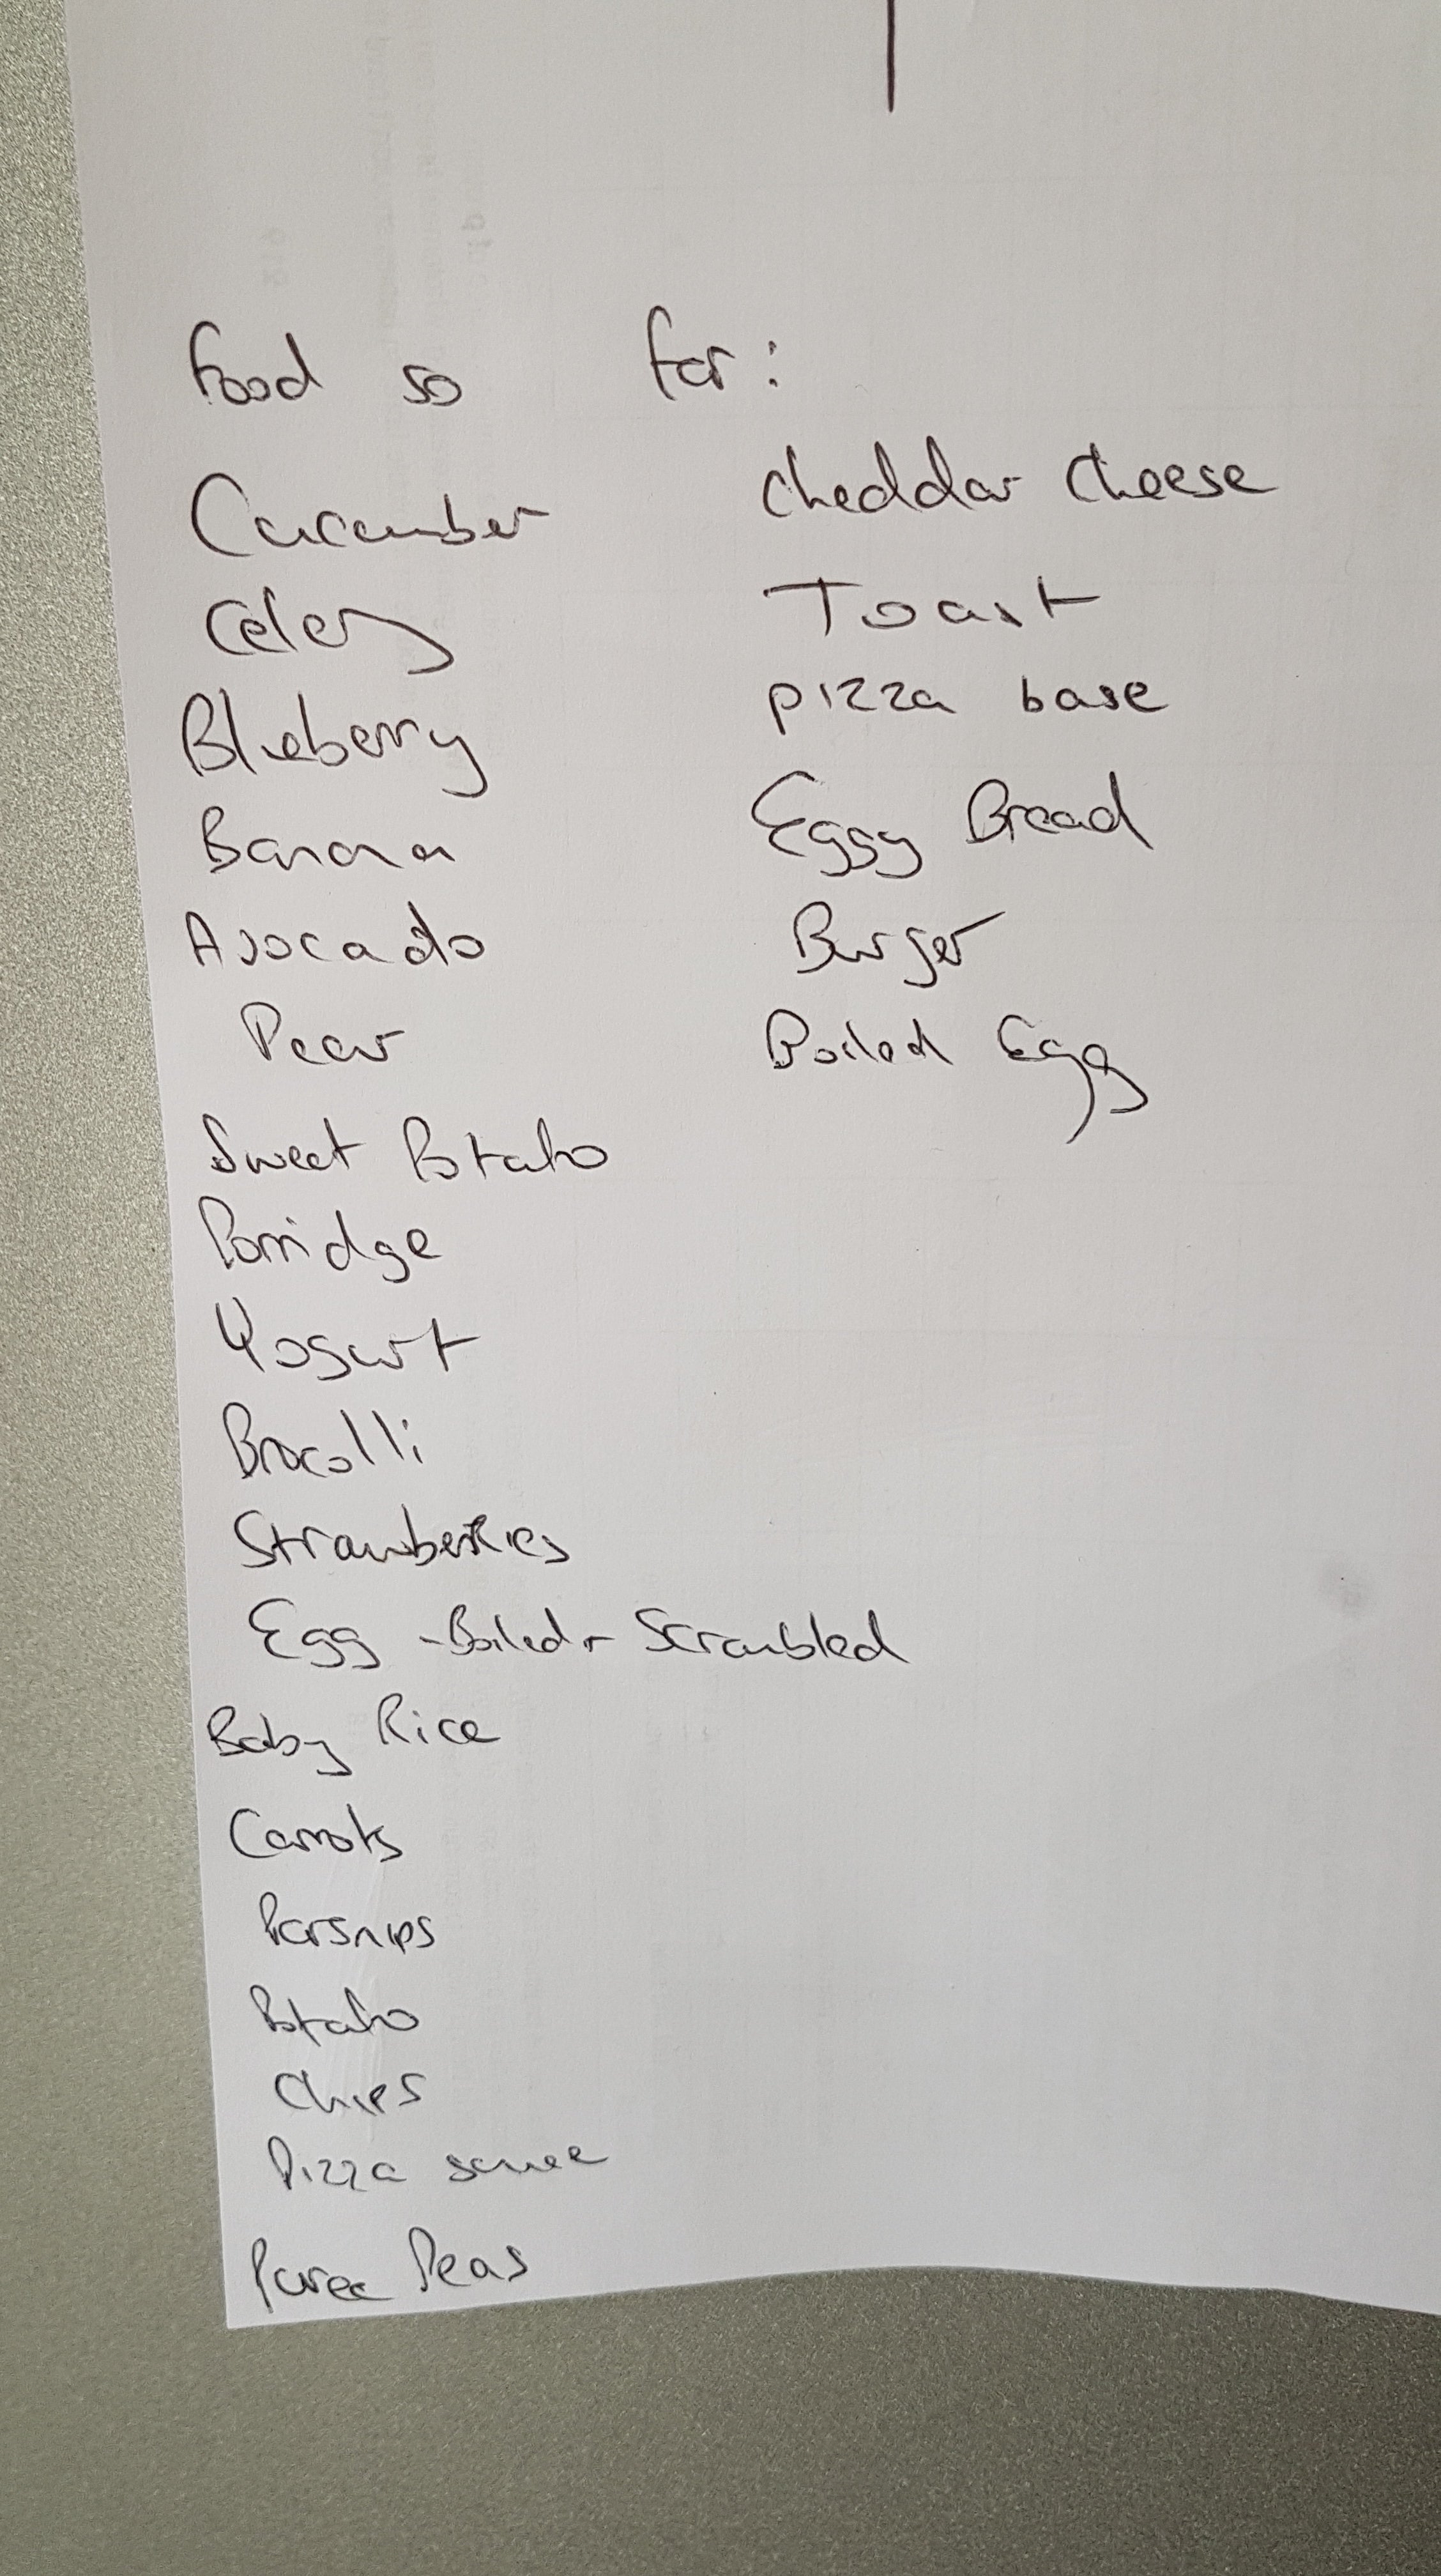 Food so far:
Cucumber
Celery
Blueberry
Banana
Avocado
Pear
Sweet Potato
Porridge
Yogurt
Brocolli
Strawberries
Egg - Boiled + Scrambled
Baby Rice
Carrots
Parsnips
Potato
Chips
Pizza sauce
Puree Peas
Cheddar Cheese
Toast
pizza base
Eggy Bread
Burger
Boiled Egg